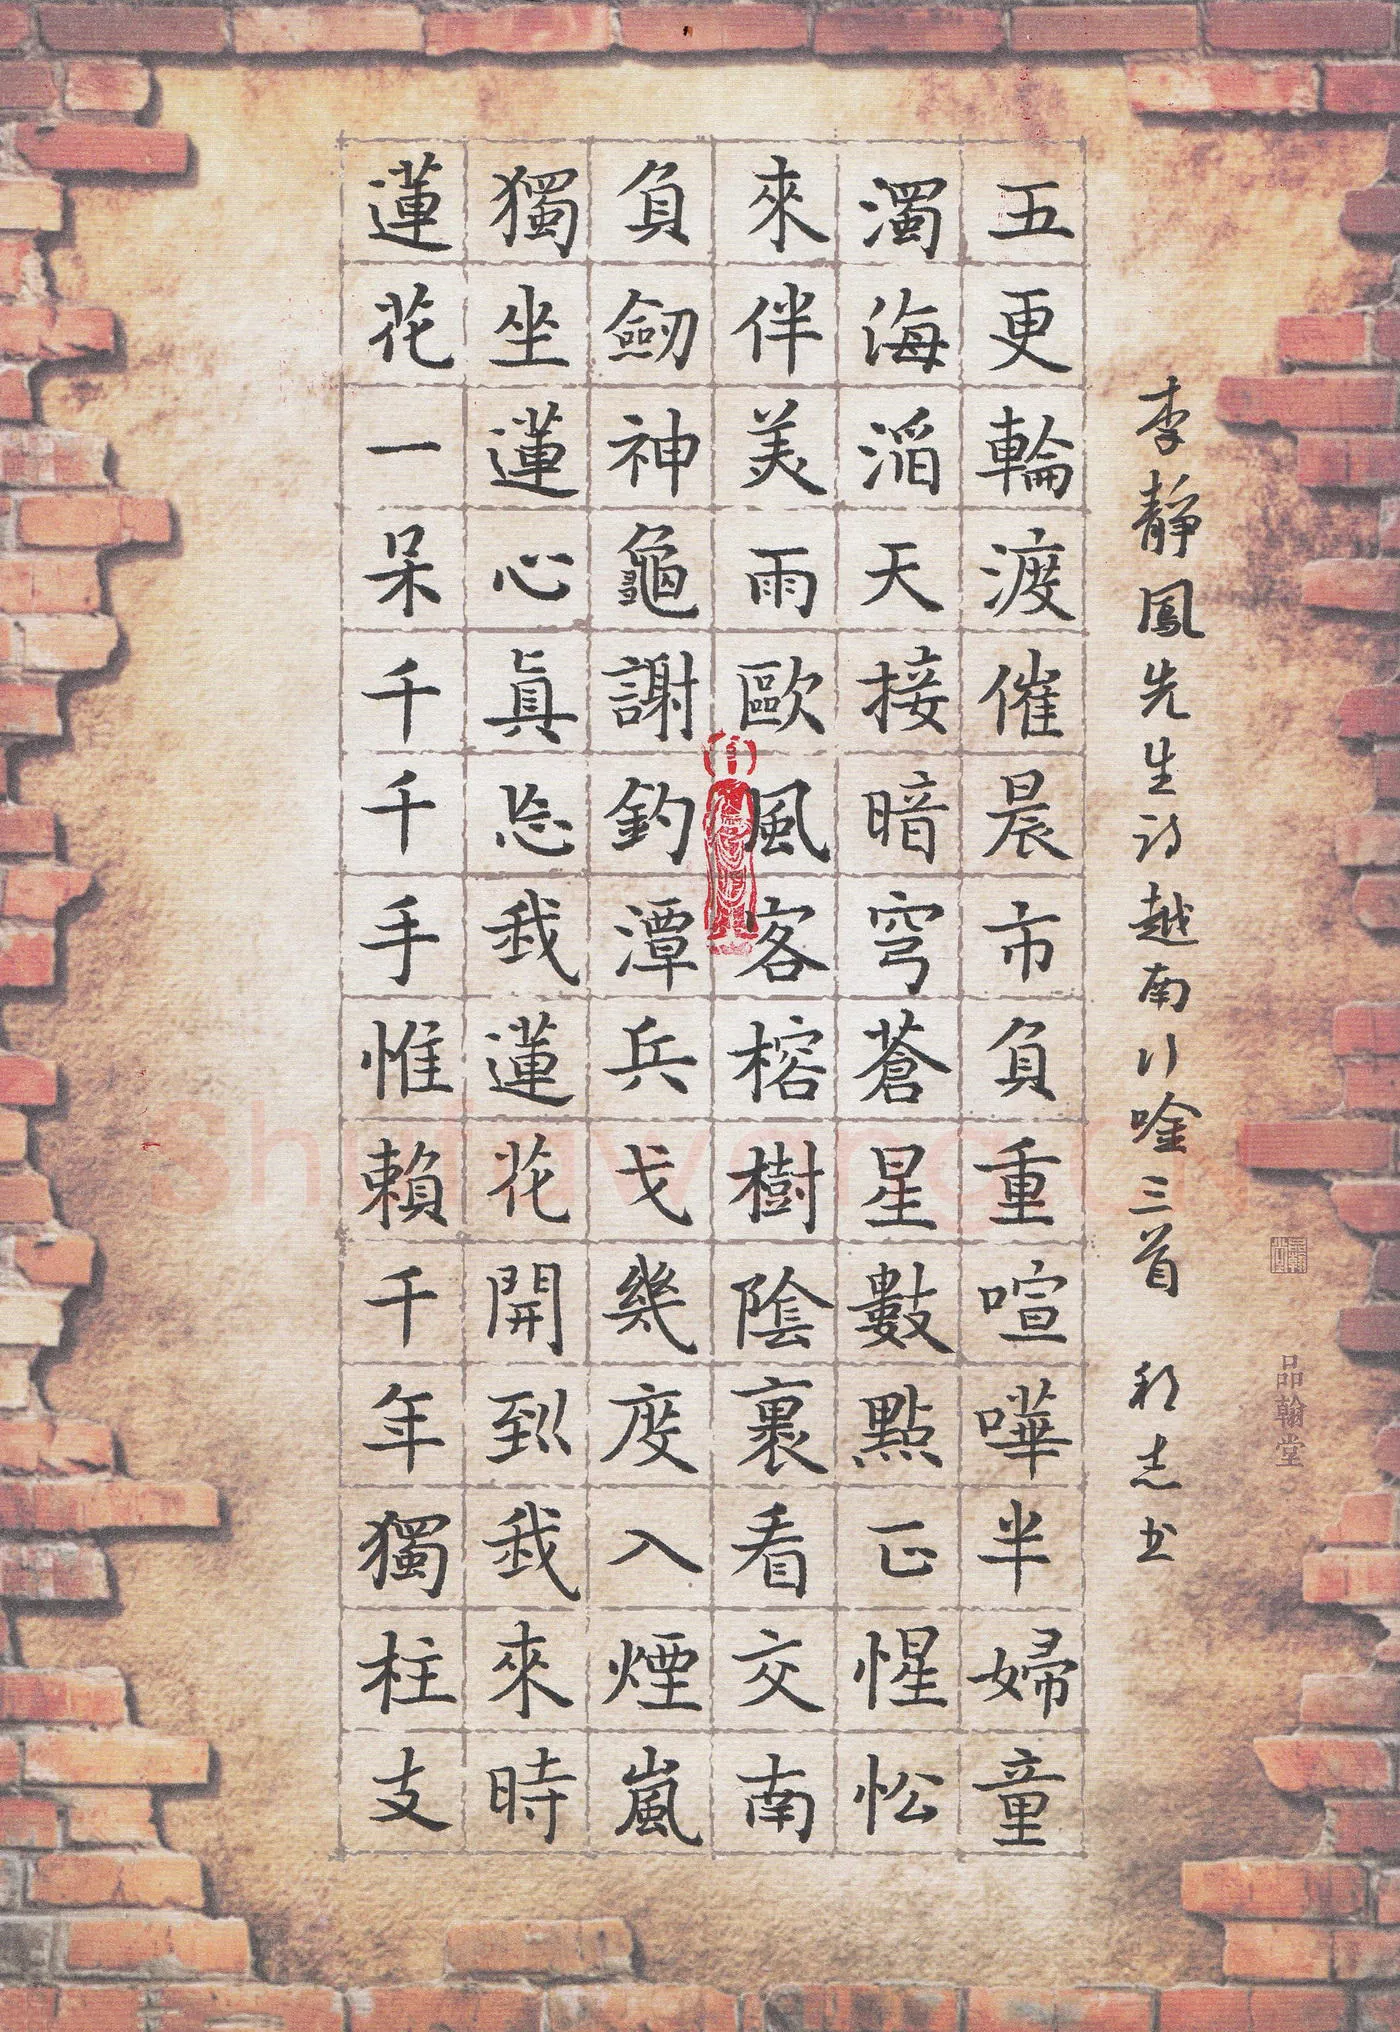 李靜鳳先生詩越南行唫三首 利志书
五更輪渡催晨市負重喧嘩半婦童
濁海滔天接暗穹蒼星數點正惺忪
來伴美雨歐風客榕樹陰裏看交南
負劒神龜謝釣潭兵戈幾度入煙嵐
獨坐蓮心眞忘我蓮花開到我來時
蓮花一朵千千手惟賴千年獨柱支
品翰堂